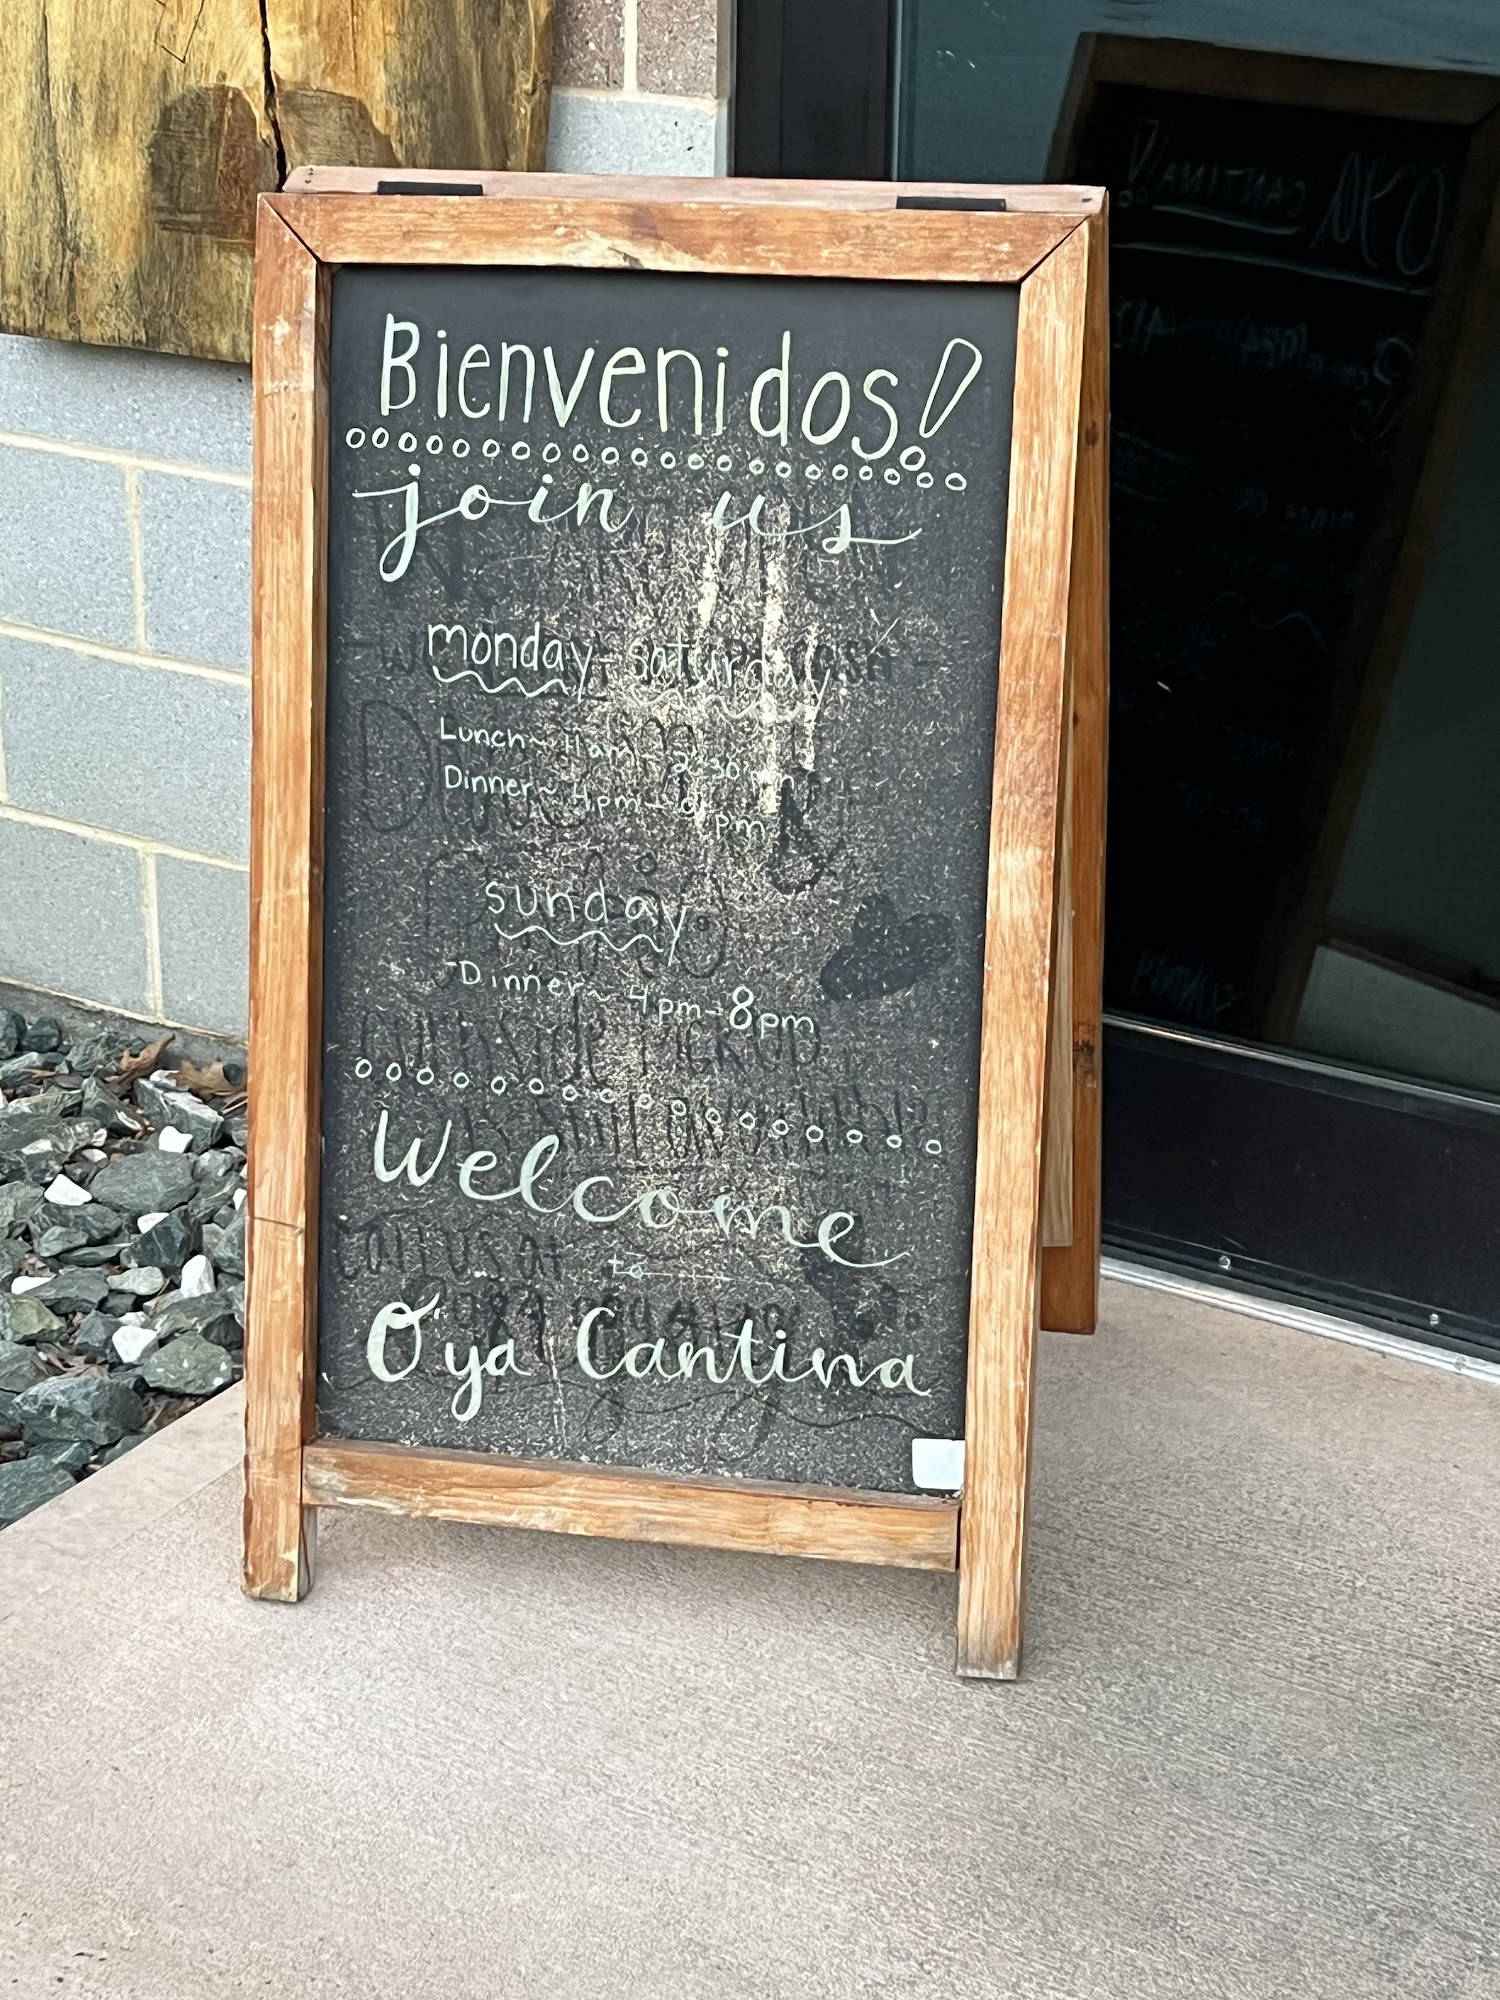 Bienvenidos!
join us
monday - saturday
Lunch~ 11am - 2:30 pm
Dinner~ 4pm - 9pm
sunday
Dinner~ 4pm-8pm
Welcome
to
O'ya Cantina